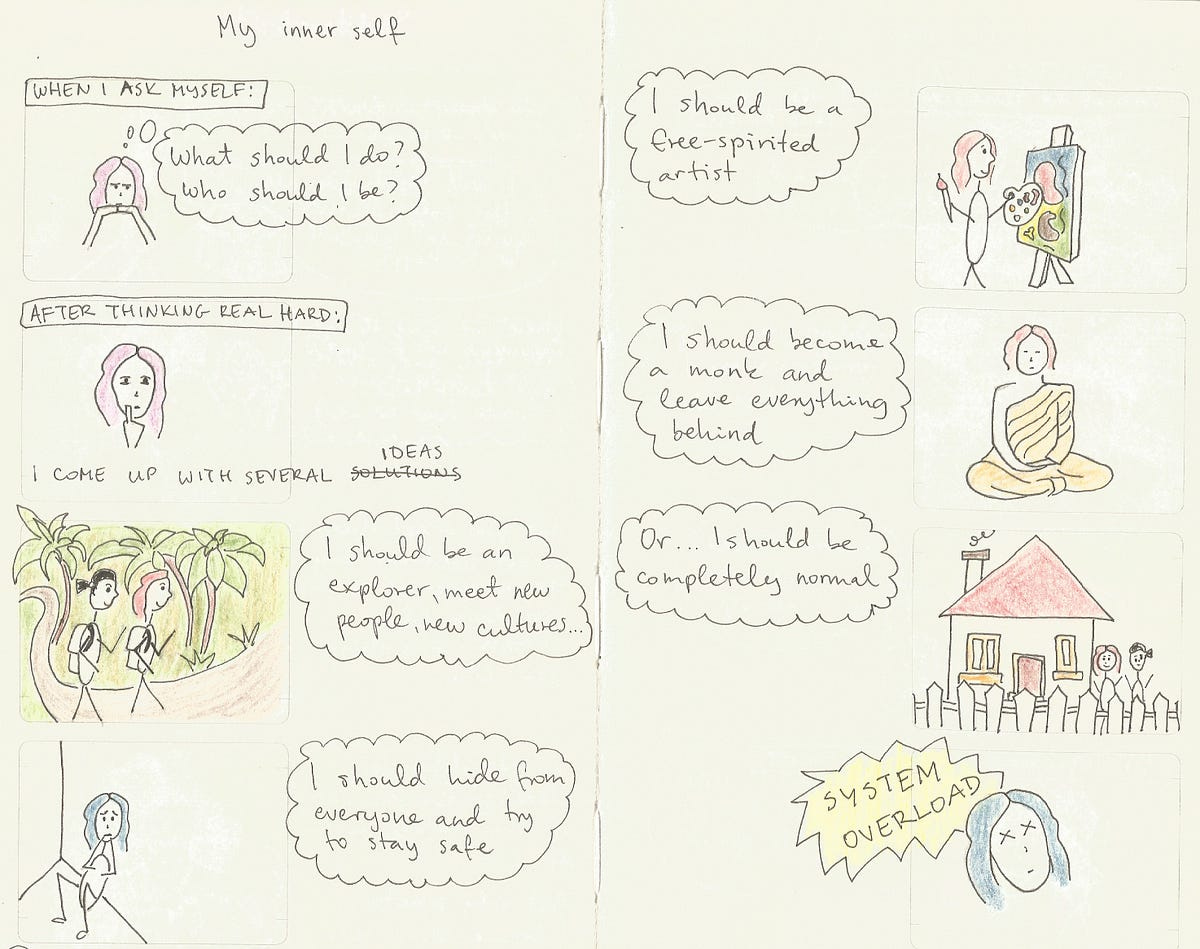 My inner self
WHEN I ASK MYSELF:
What should I do?
Who should I be?
AFTER THINKING REAL HARD:
IDEAS
I COME UP WITH SEVERAL SOLUTIONS
I should be an
explorer, meet new
people, new cultures...
I should hide from
everyone and try
to stay safe
I should be a
free-spirited
artist
I should become
a monk and
leave everything
behind
Or... I should be
completely normal
SYSTEM
OVERLOAD